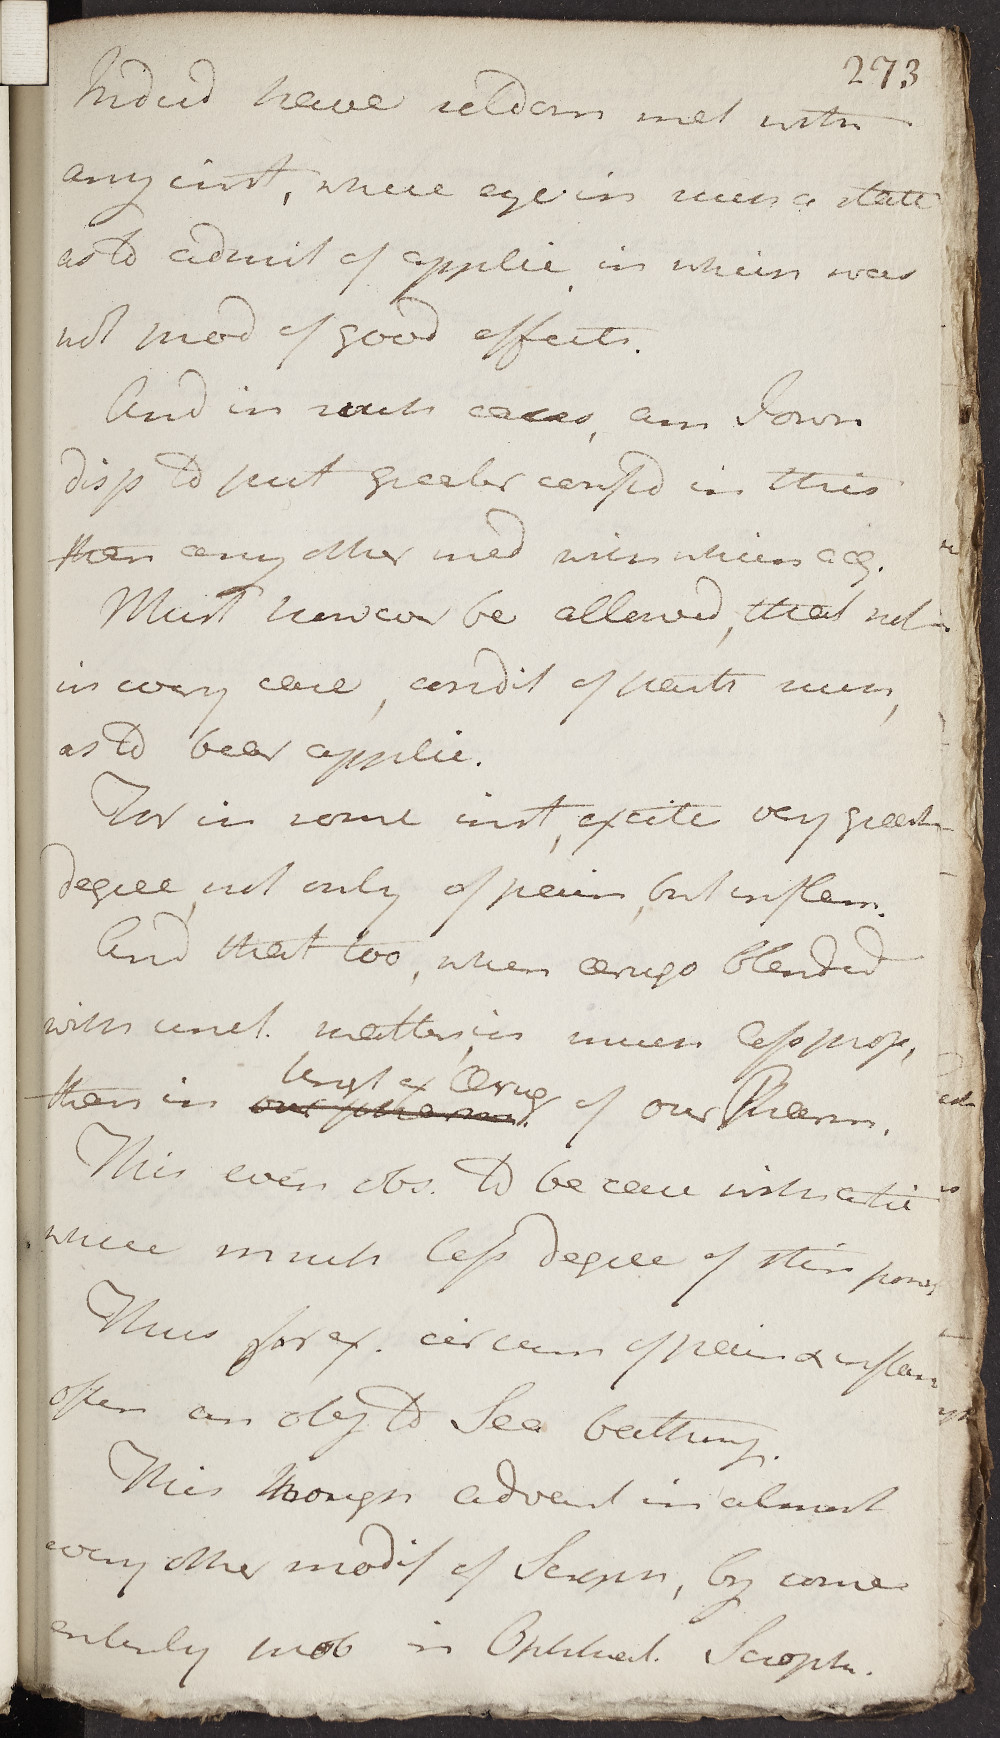 273
Indeed have seldom met with
any inst, where eye in such a state
as to admit of applic. in which was
not prod of good effects.
And in such cases, am I own
disp to put greater confid in this
than any other med with which acq.
Must however be allowed, that not
in every case, condit of parts such,
as to bear applic.
For in some inst, excite very great
degree, not only of pain, but inflam.
And that too, when ærugo blended
with unct. matter, in much less prop,
than in our pharm. of our Pharm.
Ungt ex Ærug
This even obs. to be case with
where much less degree of stim power
Thus for ex. circum of pain & inflam
often an obj to Sea bathing.
This though advant in almost
every other modif of Scroph, by some
entirely prob in Ophthal. Scroph.